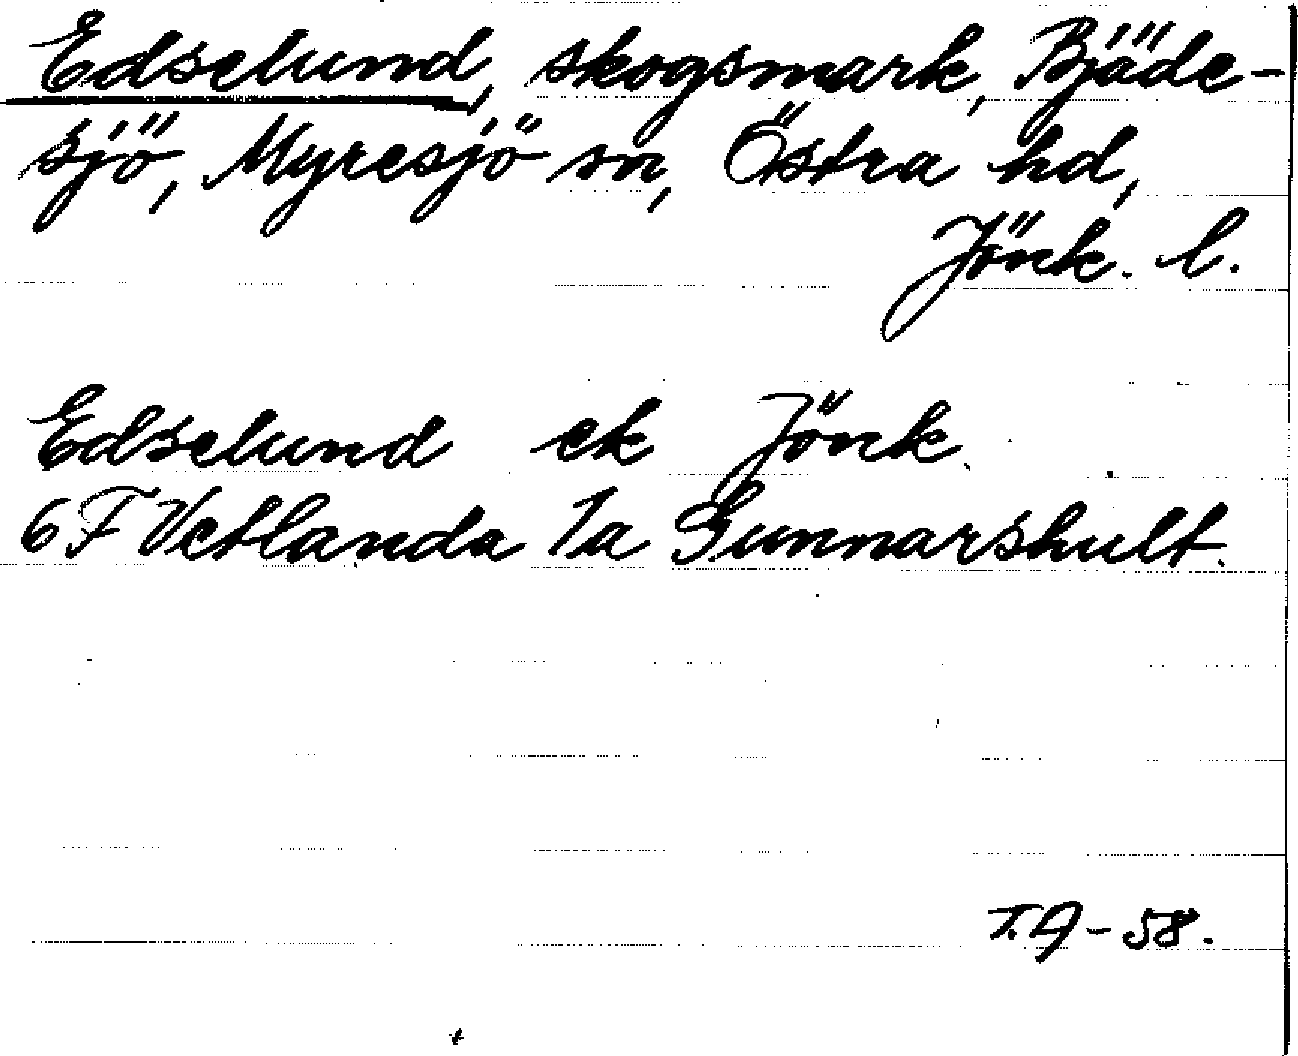 Edselund, skogsmark, Bjäde-
sjö, Myresjö sn, Östra hd,
Jönk. l.
Edselund ek Jönk.
6 F Vetlanda 1a Gunnarshult.
T.A-58.